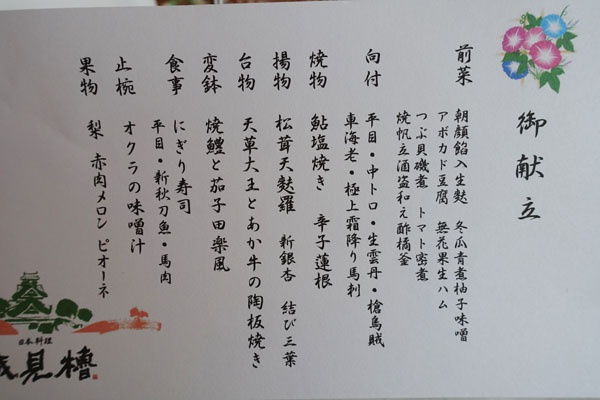 御献立
前菜
朝顔餡入生麩 冬瓜青煮柚子味噌
アボカド豆腐 無花果生ハム
つぶ貝磯煮 トマト蜜煮
焼帆立酒盗和え酢橘釜
向付
平目・中トロ・生雲丹・槍烏賊
車海老・極上霜降り馬刺
焼物 鮎塩焼き 辛子蓮根
揚物 松茸天麩羅 新銀杏 結び三葉
台物 天草大王とあか牛の陶板焼き
変鉢 焼鱧と茄子田楽風
食事 にぎり寿司
平目・新秋刀魚・馬肉
止椀 オクラの味噌汁
果物 梨 赤肉メロン ピオーネ
日本料理
見櫓